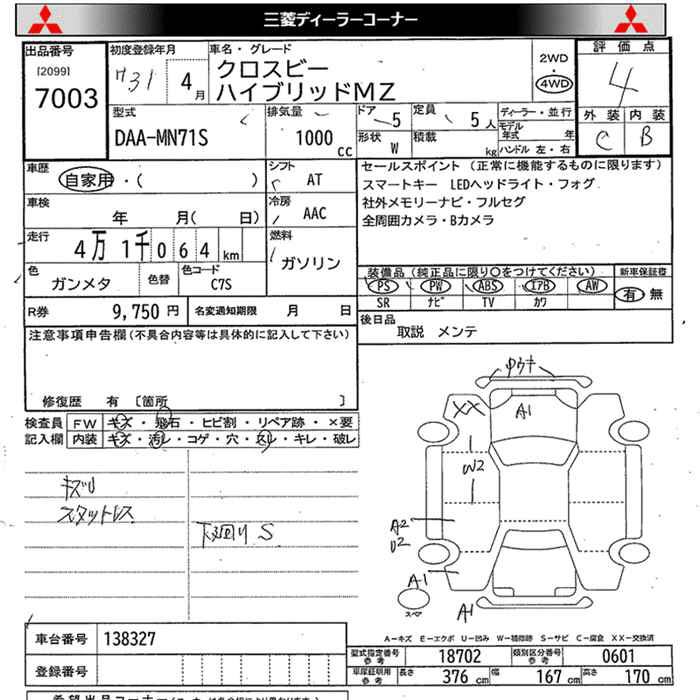 三菱ディーラーコーナー
出品番号
[2099]
7003
初度登録年月
H31年 4月
車名・グレード
クロスビー
ハイブリッドMZ
2WD
4WD
評価点
4
外装 内装
C B
型式
DAA-MN71S
排気量
1000 cc
ドア 5
定員 5人
形状 W
積載 kg
ディーラー・並行
モデル年式 年
ハンドル 左・右
車歴
自家用・( )
シフト
AT
車検
年 月( 日)
冷房
AAC
走行
4万 1千 0 6 4 km
燃料
ガソリン
色
ガンメタ
色替
色コード
C7S
R券 9,750 円
名変通知期限 月 日
セールスポイント (正常に機能するものに限ります)
スマートキー LEDヘッドライト・フォグ
社外メモリーナビ・フルセグ
全周囲カメラ・Bカメラ
装備品(純正品に限り○をつけてください)
新車保証書
PS PW ABS エアB AW
SR ナビ TV カワ
有・無
後日品
取説 メンテ
注意事項申告欄(不具合内容等は具体的に記入して下さい)
修復歴 有 [箇所 ]
検査員
記入欄
FW キズ・飛石・ヒビ割・リペア跡・×要
内装 キズ・汚レ・コゲ・穴・スレ・キレ・破レ
キズU
スタットレス
下廻り S
XX
A1
W2
A2
U2
A1
A1
スペア
A-キズ E-エクボ U-凹み W-補修跡 S-サビ C-腐食 XX-交換済
車台番号 138327
登録番号
型式指定番号
参考
18702
類別区分番号
参考
0601
車庫証明用
参考
長さ 376 cm 幅 167 cm 高さ 170 cm